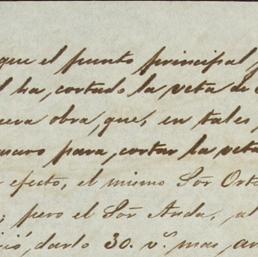 que el punto principal
ha, cortado la veta de
obra, que, en tales
para, cortar la veta
efecto, el mismo Sor Ort
; pero el Sor Anda, al
darlo 30. v.s mas, an